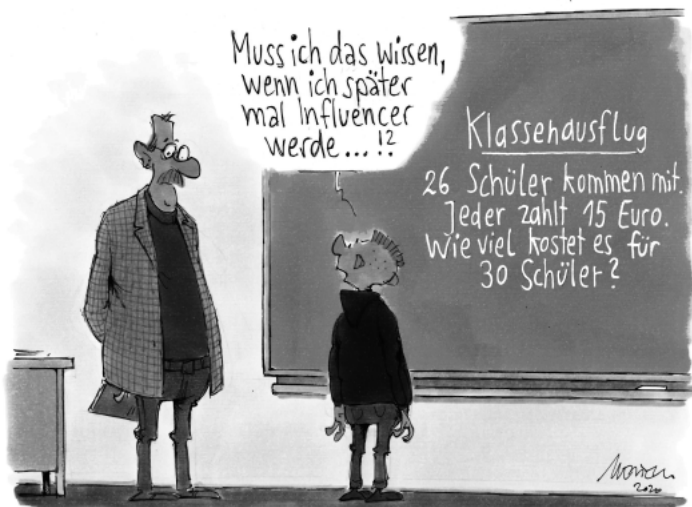 Muss ich das wissen,
wenn ich später
mal Influencer
werde... !?
Klassenausflug
26 Schüler kommen mit.
Jeder zahlt 15 Euro.
Wie viel kostet es für
30 Schüler?
2020